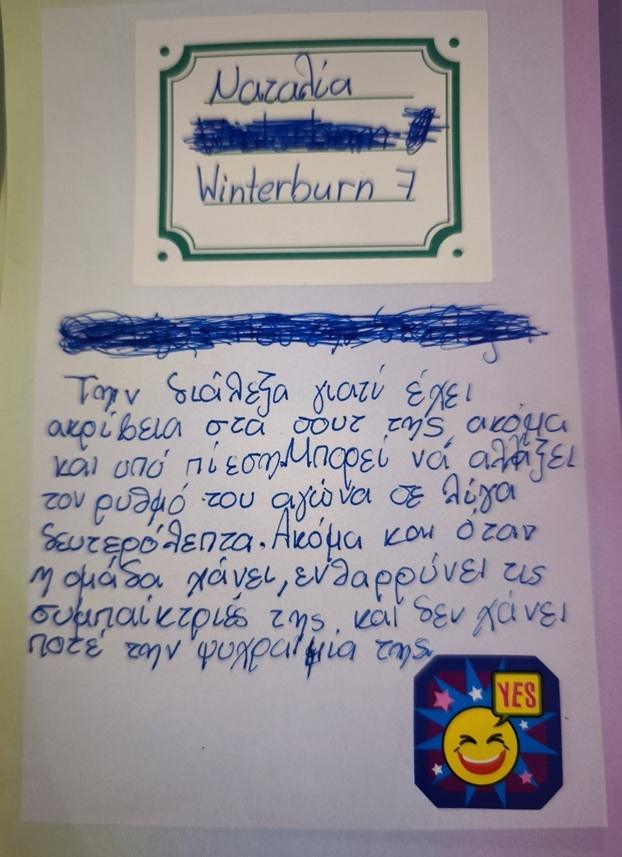 Ναταλία
Winterburn 7
Την διάλεξα γιατί έχει
ακρίβεια στα σουτ της, ακόμα
και υπό πίεση. Μπορεί νά αλλάξει
τον ρυθμό του αγώνα σε λίγα
δευτερόλεπτα. Ακόμα και όταν
η ομάδα χάνει, ενθαρρύνει τις
συμπαίκτριές της και δεν χάνει
ποτέ την ψυχραιμία της
YES